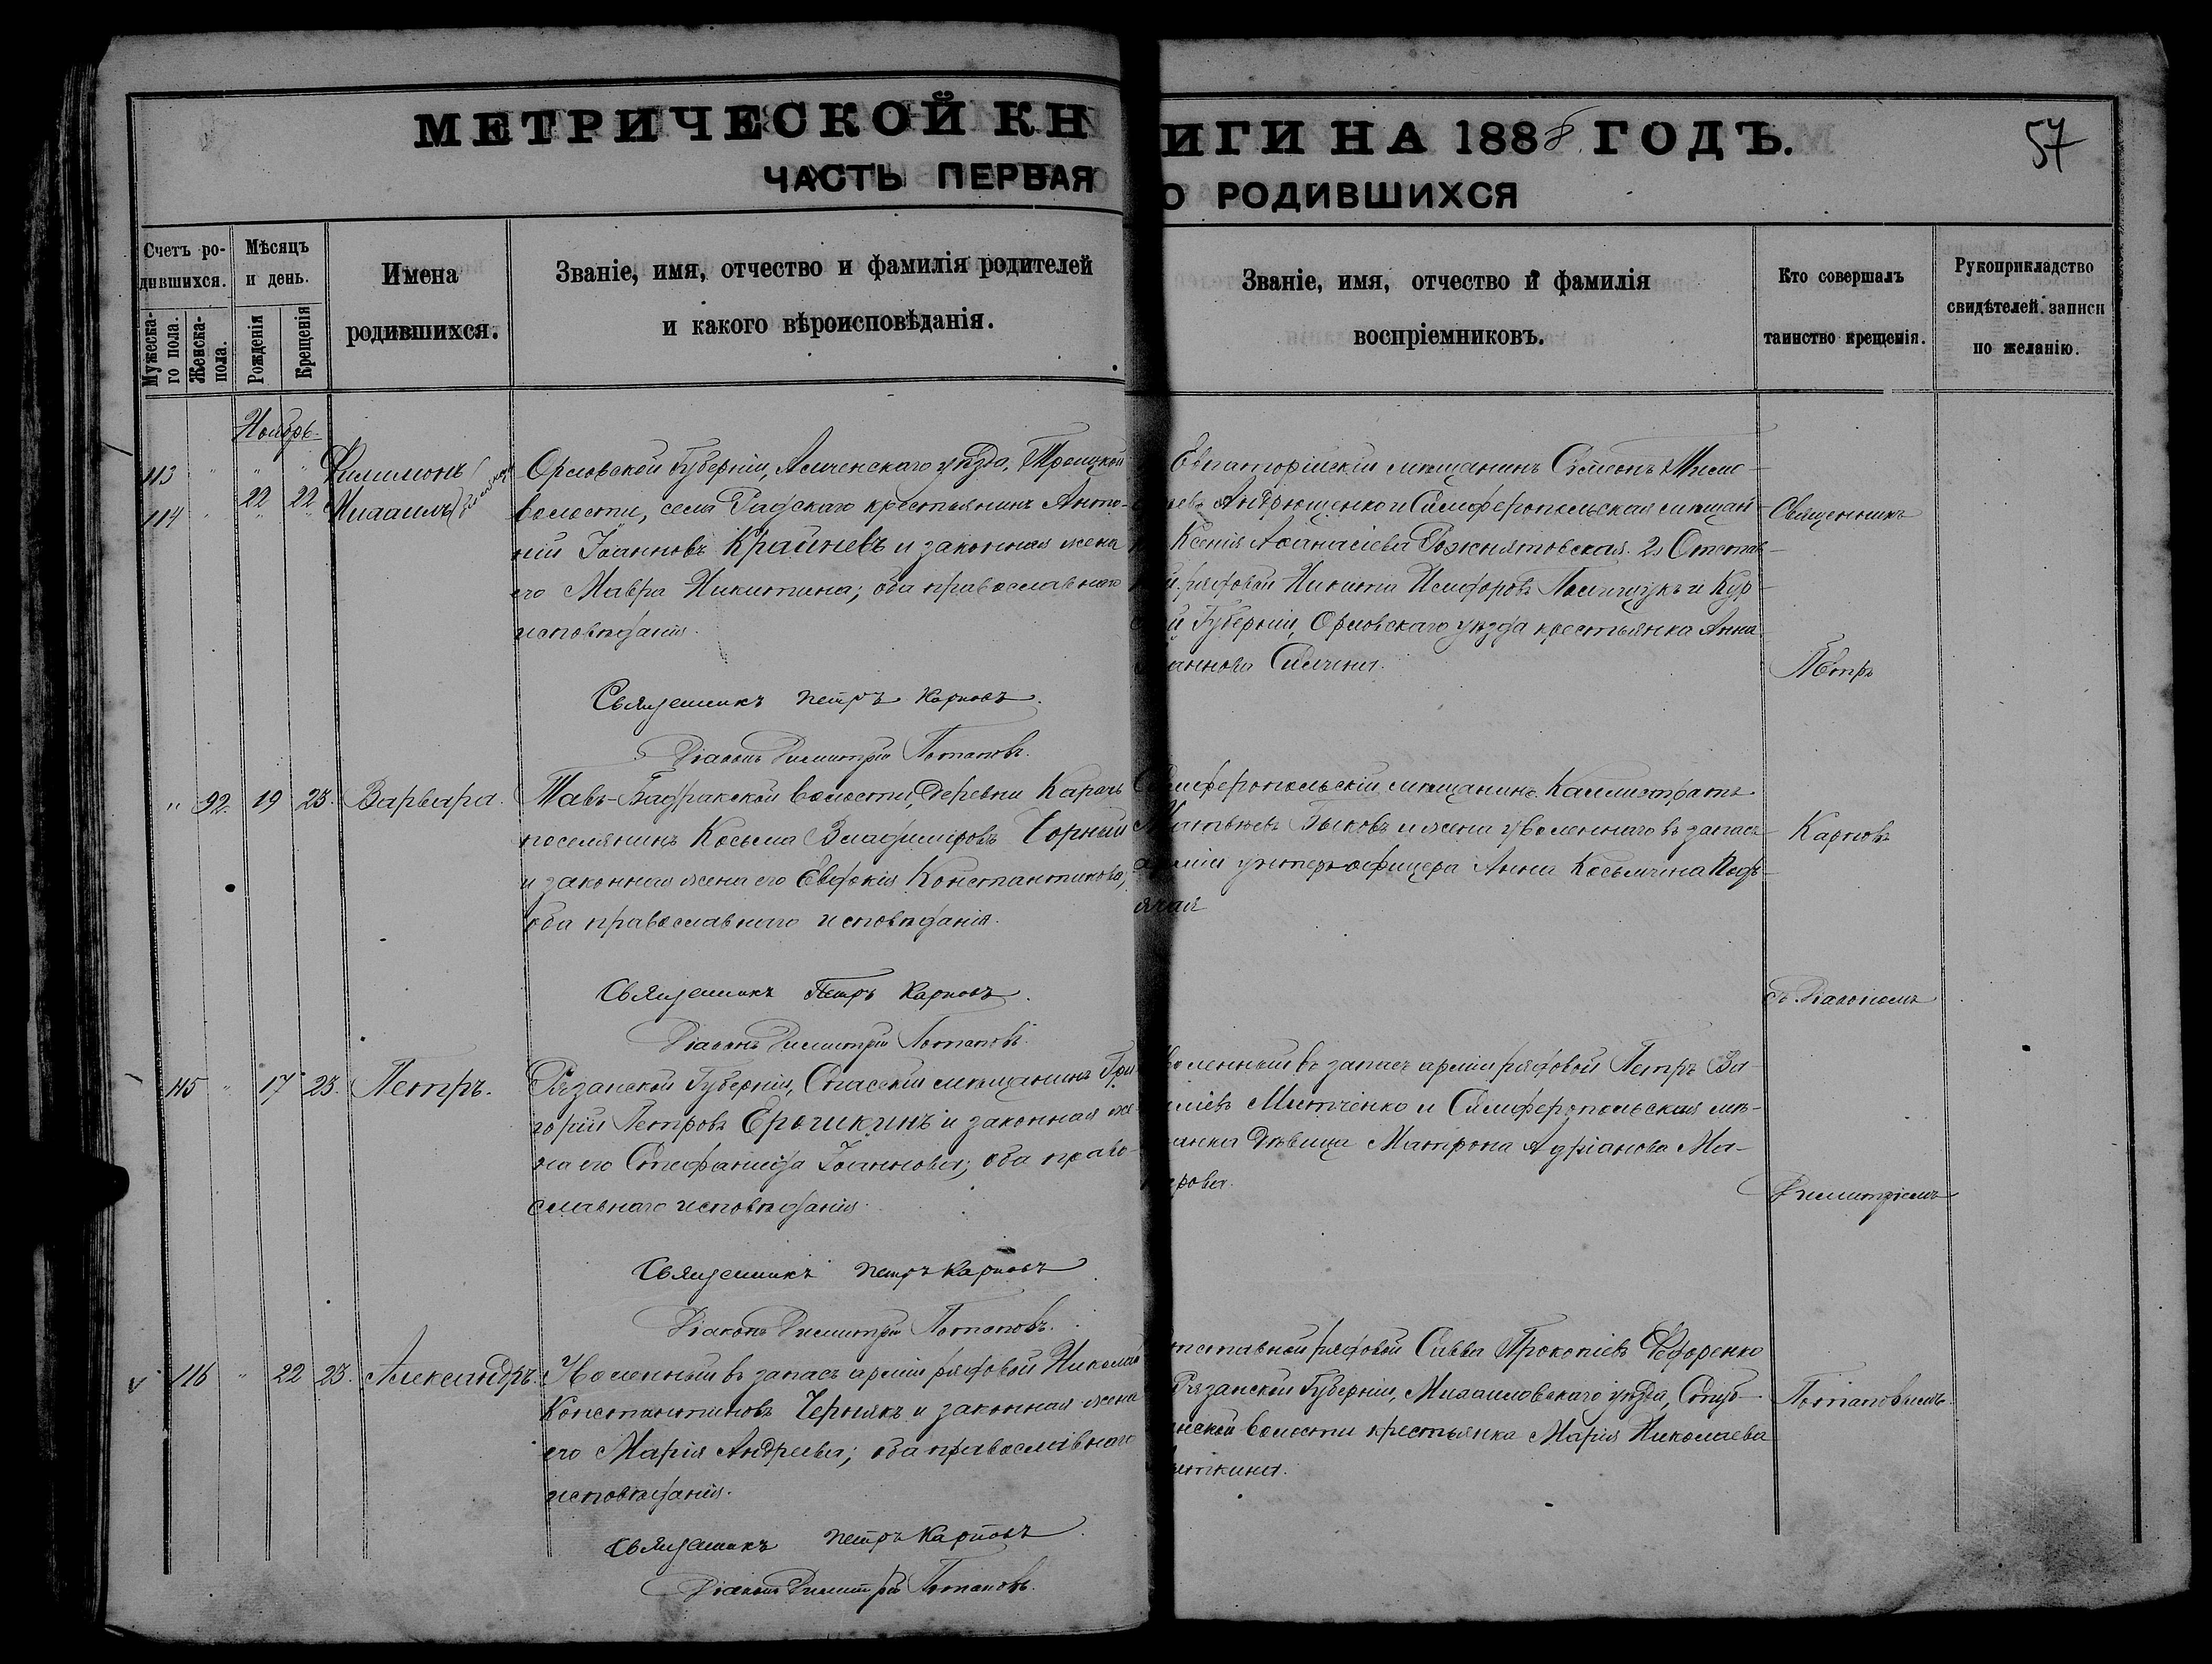 МЕТРИЧЕСКОЙ КНИГИ НА 1888 ГОДЪ.
57
ЧАСТЬ ПЕРВАЯ О РОДИВШИХСЯ
Счетъ ро-
дившихся.
Мужеска-
го пола.
Женска-
пола.
Мѣсяцъ
и день.
Рожденія
Крещенія
Имена
родившихся.
Званіе, имя, отчество и фамилія родителей
и какого вѣроисповѣданія.
Званіе, имя, отчество и фамилія
воспріемниковъ.
Кто совершалъ
таинство крещенія.
Рукоприкладство
свидѣтелей записи
по желанію.
Ноябрь
113 " " " Филимонъ
114 " 22 22 Михаилъ
Орловской Губерніи, уѣзда, Троицкой
волости, села крестьянинъ Анто-
ній Іоанновъ Крайневъ и законная жена
его Мавра Никитина; оба православнаго
исповѣданія.
Священникъ Петръ Карповъ.
Діаконъ Димитрій Потаповъ.
Евпаторійскій мѣщанинъ Симеонъ
Андрющенко и Симферопольская мѣщан-
Ксенія Аѳанасіева 2) Отстав-
рядовой Никита и Кур-
й Губерніи, Орловскаго уѣзда крестьянка Анна
аннова
Священникъ
Петръ
" 92. 19 23. Варвара.
Тавъ-Бадракской волости, деревни Карачъ
поселянинъ Косьма Владиміровъ Чорный
и законная жена его Евдокія Константинова,
оба православнаго исповѣданія.
Священникъ Петръ Карповъ.
Діаконъ Димитрій Потаповъ.
Симферопольскій мѣщанинъ Каллистратъ
Матвѣевъ Быковъ и жена уволеннаго въ запасъ
арміи унтеръ-офицера Анна Косьмина Подъ-
ячая
Карповъ
съ Діакономъ
115 " 17 23. Петръ.
Рязанской Губерніи, Спасскій мѣщанинъ Гри
горій Петровъ Ерошкинъ и законная же-
на его Стефанида Іоаннова; оба право-
славнаго исповѣданія.
Священникъ Петръ Карповъ
Діаконъ Димитрій Потаповъ.
воленный въ запасъ арміи рядовой Петръ Ва-
иліевъ Митченко и Симферопольская мѣ-
анка дѣвица Матрона Адріанова Ма-
рова.
Димитріемъ
116 " 22 23. Александръ.
Уволенный въ запасъ арміи рядовой Николай
Константиновъ Чернякъ и законная жена
его Марія Андреева; оба православнаго
исповѣданія.
Священникъ Петръ Карповъ
Діаконъ Димитрій Потаповъ.
тставной рядовой Савва Прокопіевъ Ѳедоренко
Рязанской Губерніи, Михаиловскаго уѣзда,
нской волости крестьянка Марія Николаева
Потаповымъ.